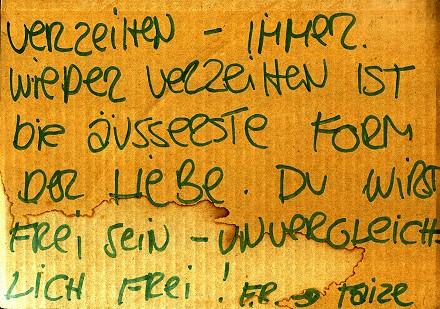 VERZEIHEN – IMMER.
WIEDER VERZEIHEN IST
DIE ÄUSSERSTE FORM
DER LIEBE. DU WIRST
FREI SEIN – UNVERGLEICH
LICH FREI! F.R. → TAIZE